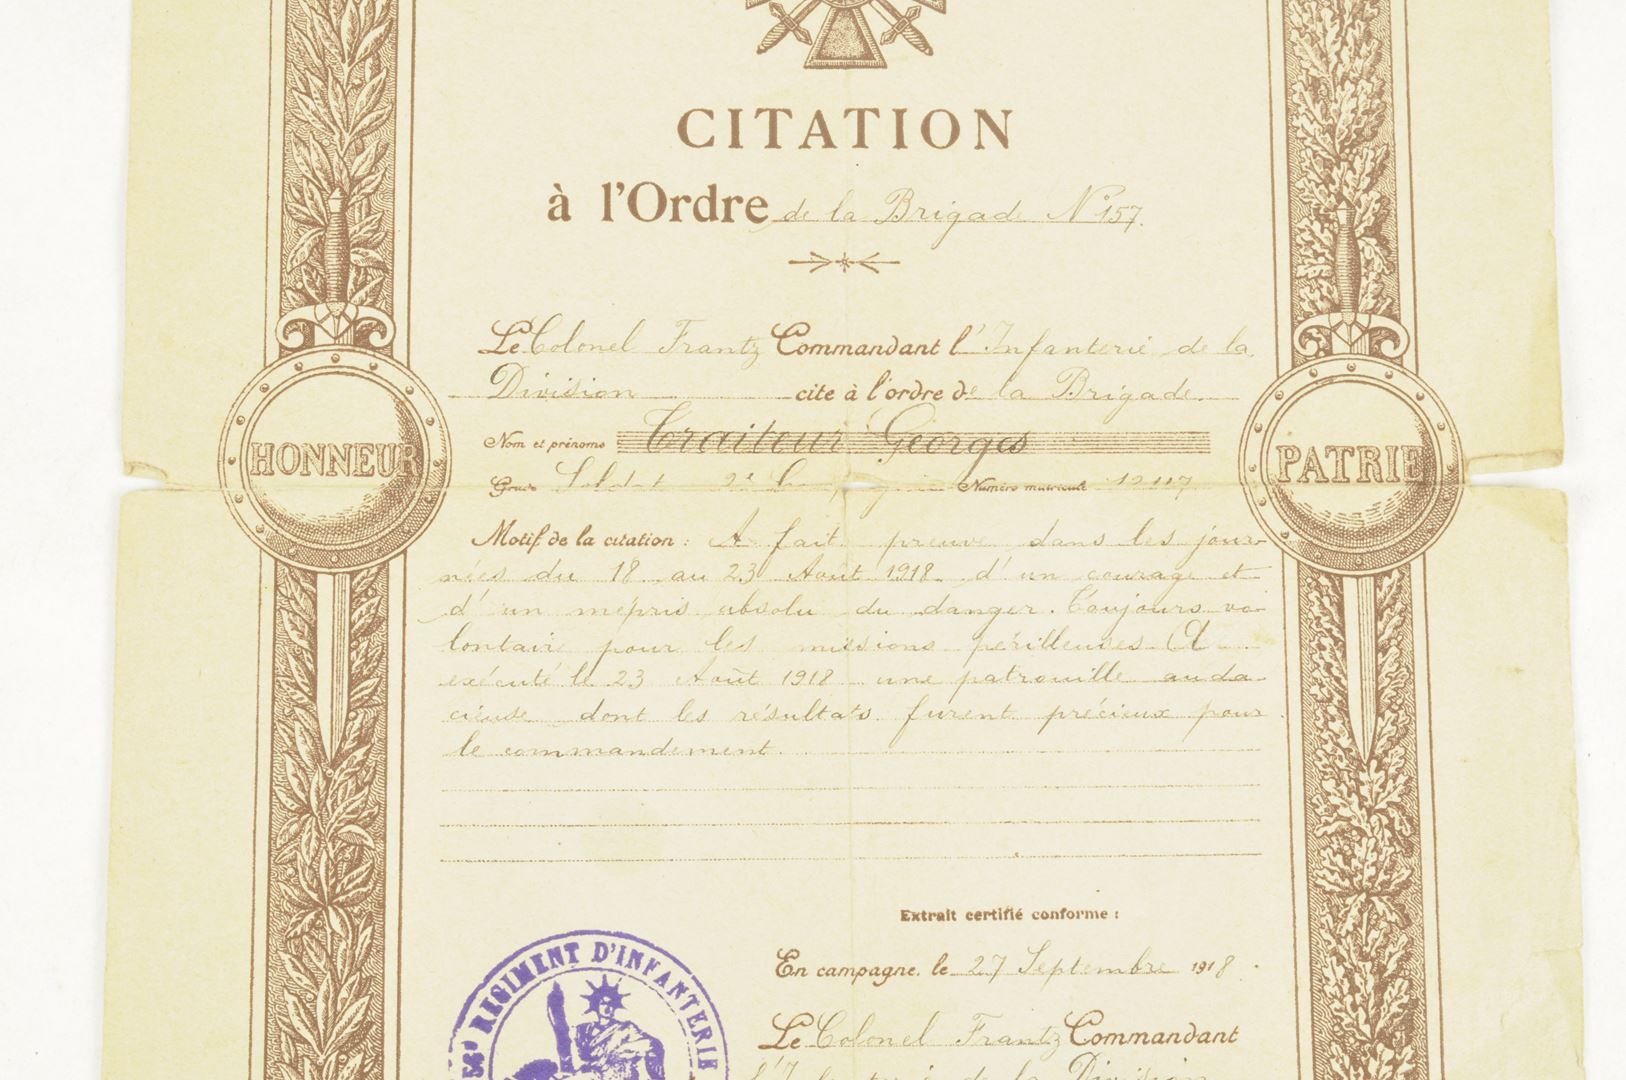 CITATION
à l'Ordre de la Brigade N° 157.
Le Colonel Frantz Commandant l'Infanterie de la
Division cite à l'ordre de la Brigade
Nom et prénoms Traiteur Georges
Grade Soldat 2e Numéro matricule 12117
HONNEUR
PATRIE
Motif de la citation : A fait preuve dans les jour-
nées du 18 au 23 Août 1918 d'un courage et
d'un mépris absolu du danger. Toujours vo-
lontaire pour les missions périlleuses. A
exécuté le 23 Août 1918 une patrouille auda-
cieuse dont les résultats furent précieux pour
le commandement.
Extrait certifié conforme :
En campagne, le 27 Septembre 1918.
RÉGIMENT D'INFANTERIE
Le Colonel Frantz Commandant
l'Infanterie de la Division